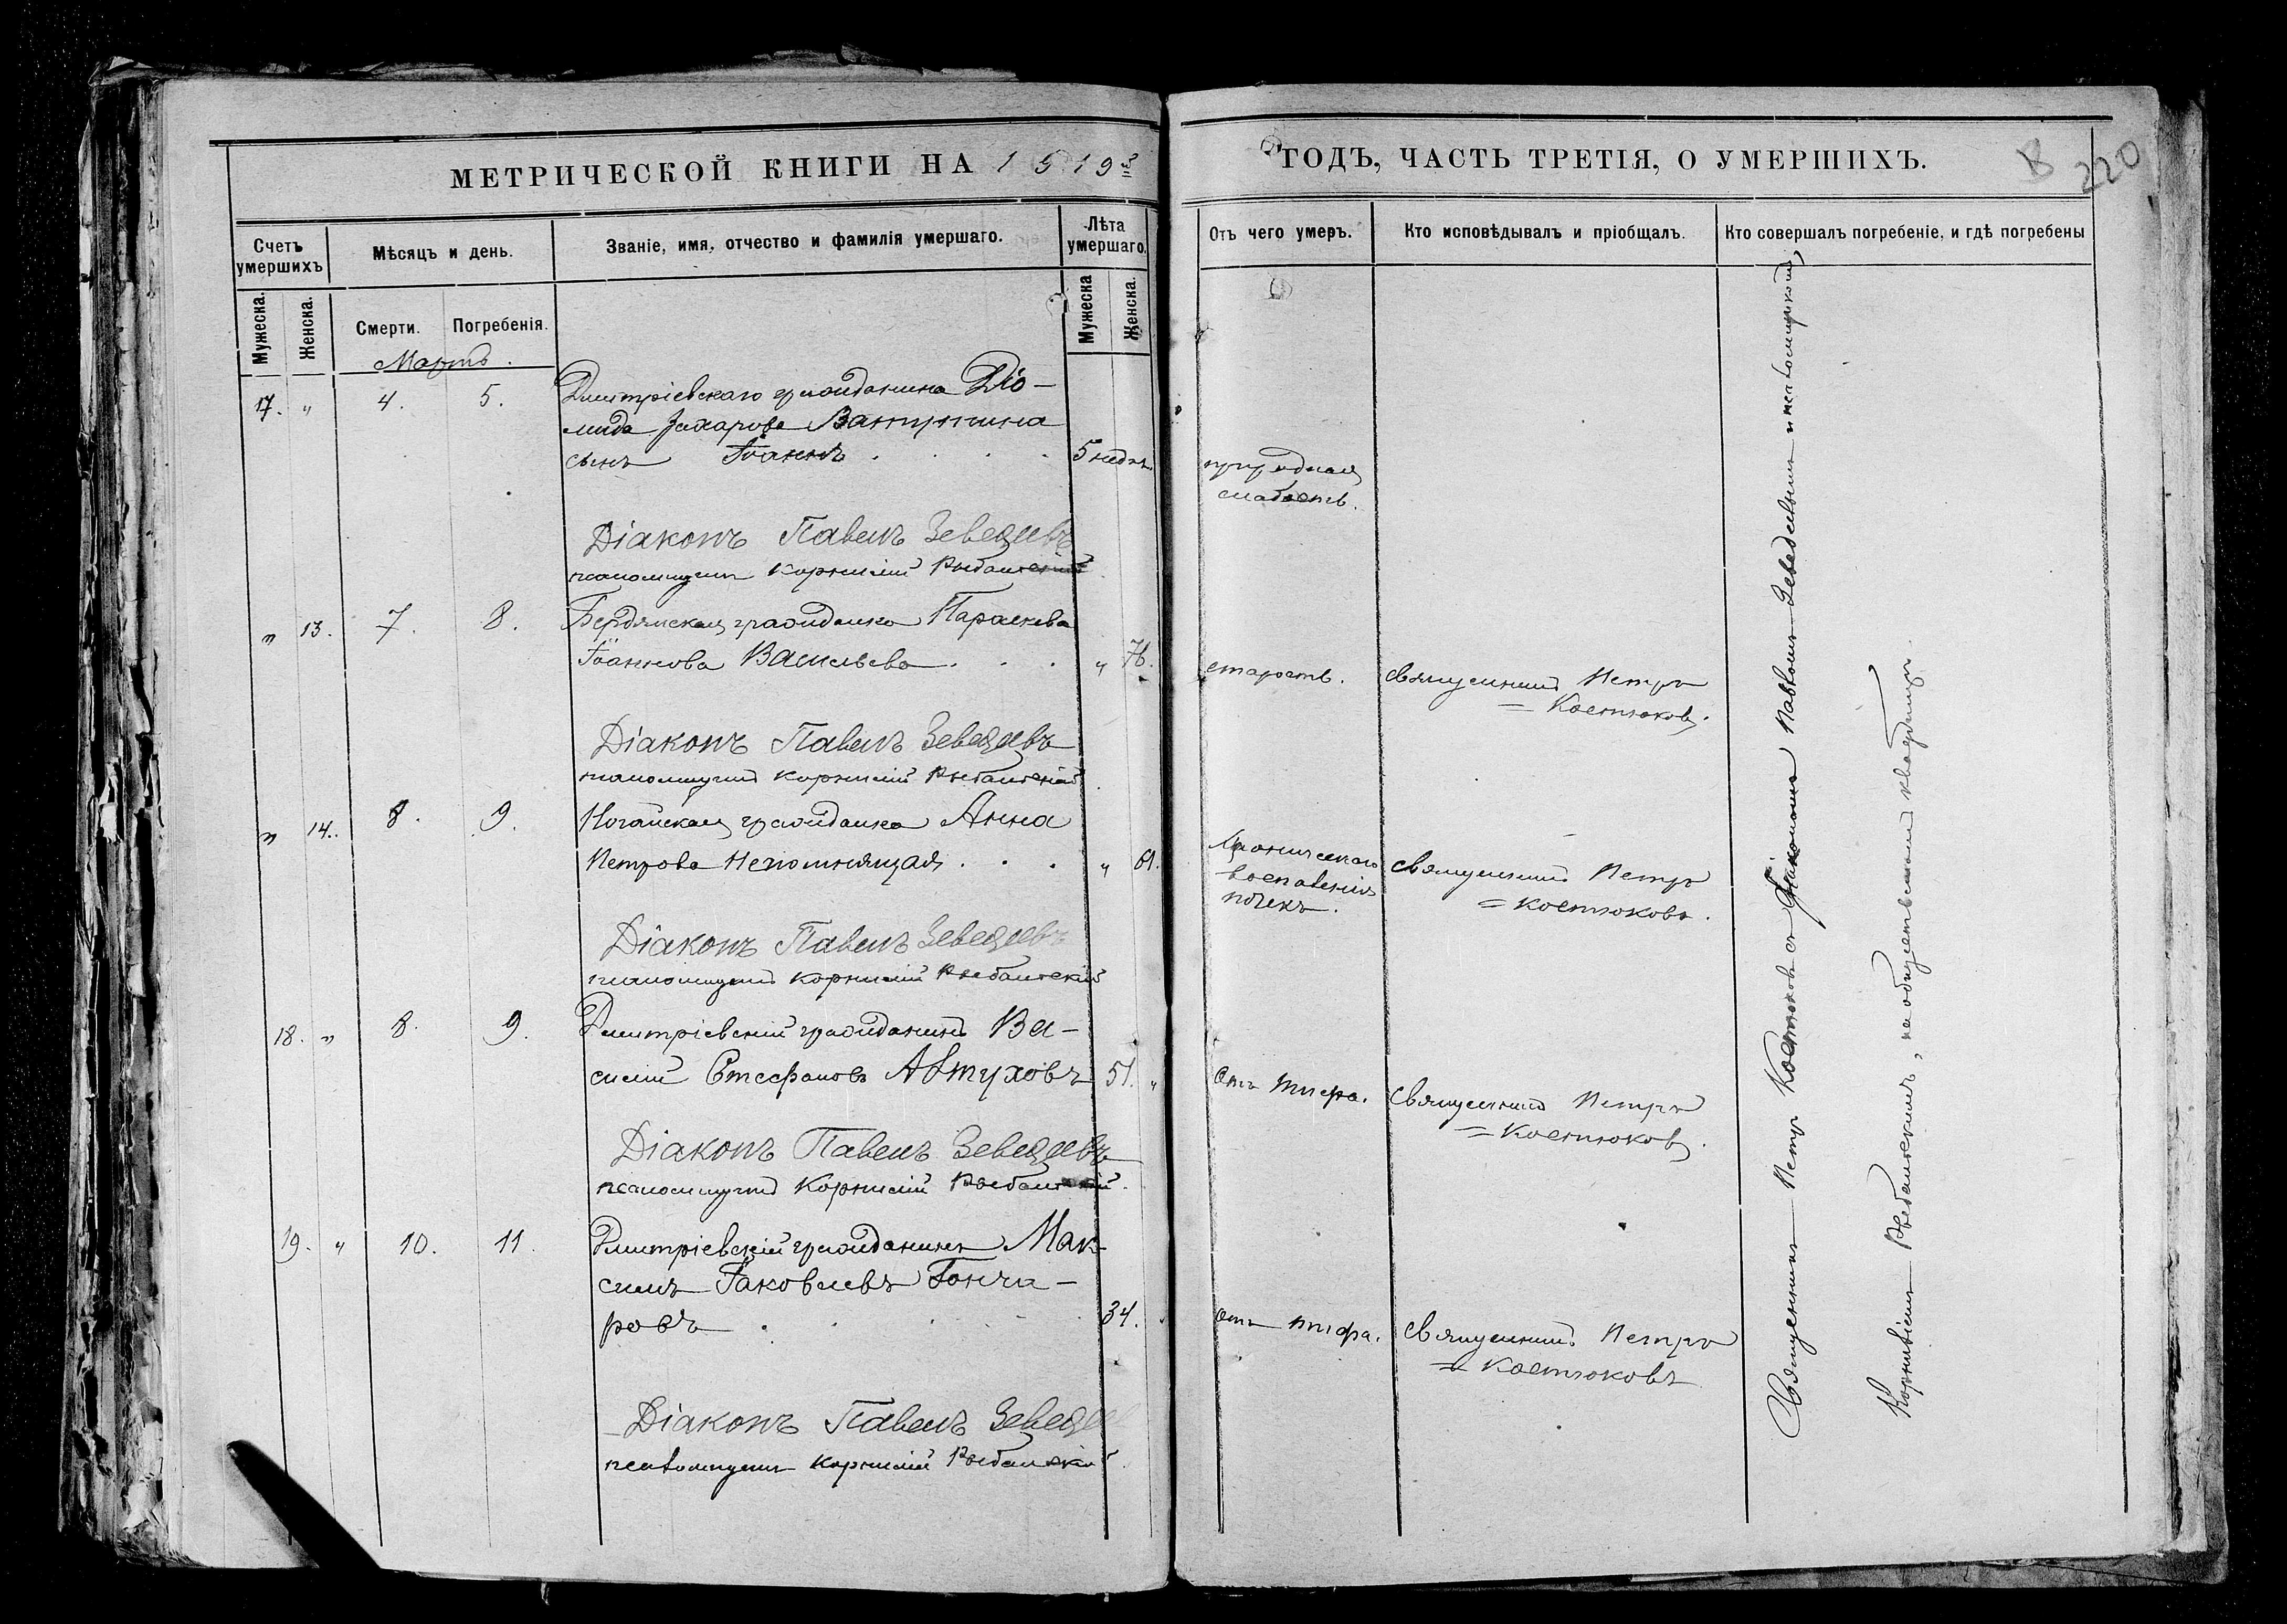 МЕТРИЧЕСКОЙ КНИГИ НА 1919
ГОДЪ, ЧАСТЬ ТРЕТІЯ, О УМЕРШИХЪ.
220
Счетъ умершихъ
Мѣсяцъ и день.
Званіе, имя, отчество и фамилія умершаго.
Лѣта умершаго.
Отъ чего умеръ.
Кто исповѣдывалъ и пріобщалъ.
Кто совершалъ погребеніе, и гдѣ погребены
Мужеска.
Женска.
Смерти.
Погребенія.
Мужеска
Женска.
Мартъ.
17. " 4. 5. Дмитріевскаго гражданина Діо-
мида Захарова
сынъ Іоаннъ 5 недѣль
природная
слабость.
Діаконъ Павелъ Зеведеевъ
псаломщикъ Корнилій
" 13. 7. 8. Бердянская гражданка Параскева
Іоаннова Васильева " 76. старость. священникъ Петръ
= Костюковъ.
Діаконъ Павелъ Зеведеевъ
псаломщикъ Корнилій
" 14. 8. 9. Ногайская гражданка Анна
Петрова Непомнящая " 61. хроническаго священникъ Петръ
воспаленія = Костюковъ.
почекъ.
Діаконъ Павелъ Зеведеевъ
псаломщикъ Корнилій
18. " 8. 9. Дмитріевскій гражданинъ Ва-
силій Стефановъ Автуховъ 51. " Отъ тифа. священникъ Петръ
= Костюковъ.
Діаконъ Павелъ Зеведеевъ
псаломщикъ Корнилій
19. " 10. 11. Дмитріевскій гражданинъ Мак-
симъ Іаковлевъ Гонча-
ровъ 34. отъ тифа. священникъ Петръ
= Костюковъ
Діаконъ Павелъ Зеведеевъ
псаломщикъ Корнилій
Священникъ Петръ Костюковъ съ діакономъ Павломъ Зеведеевымъ и псаломщикомъ
Корниліемъ на общественномъ кладбищѣ.